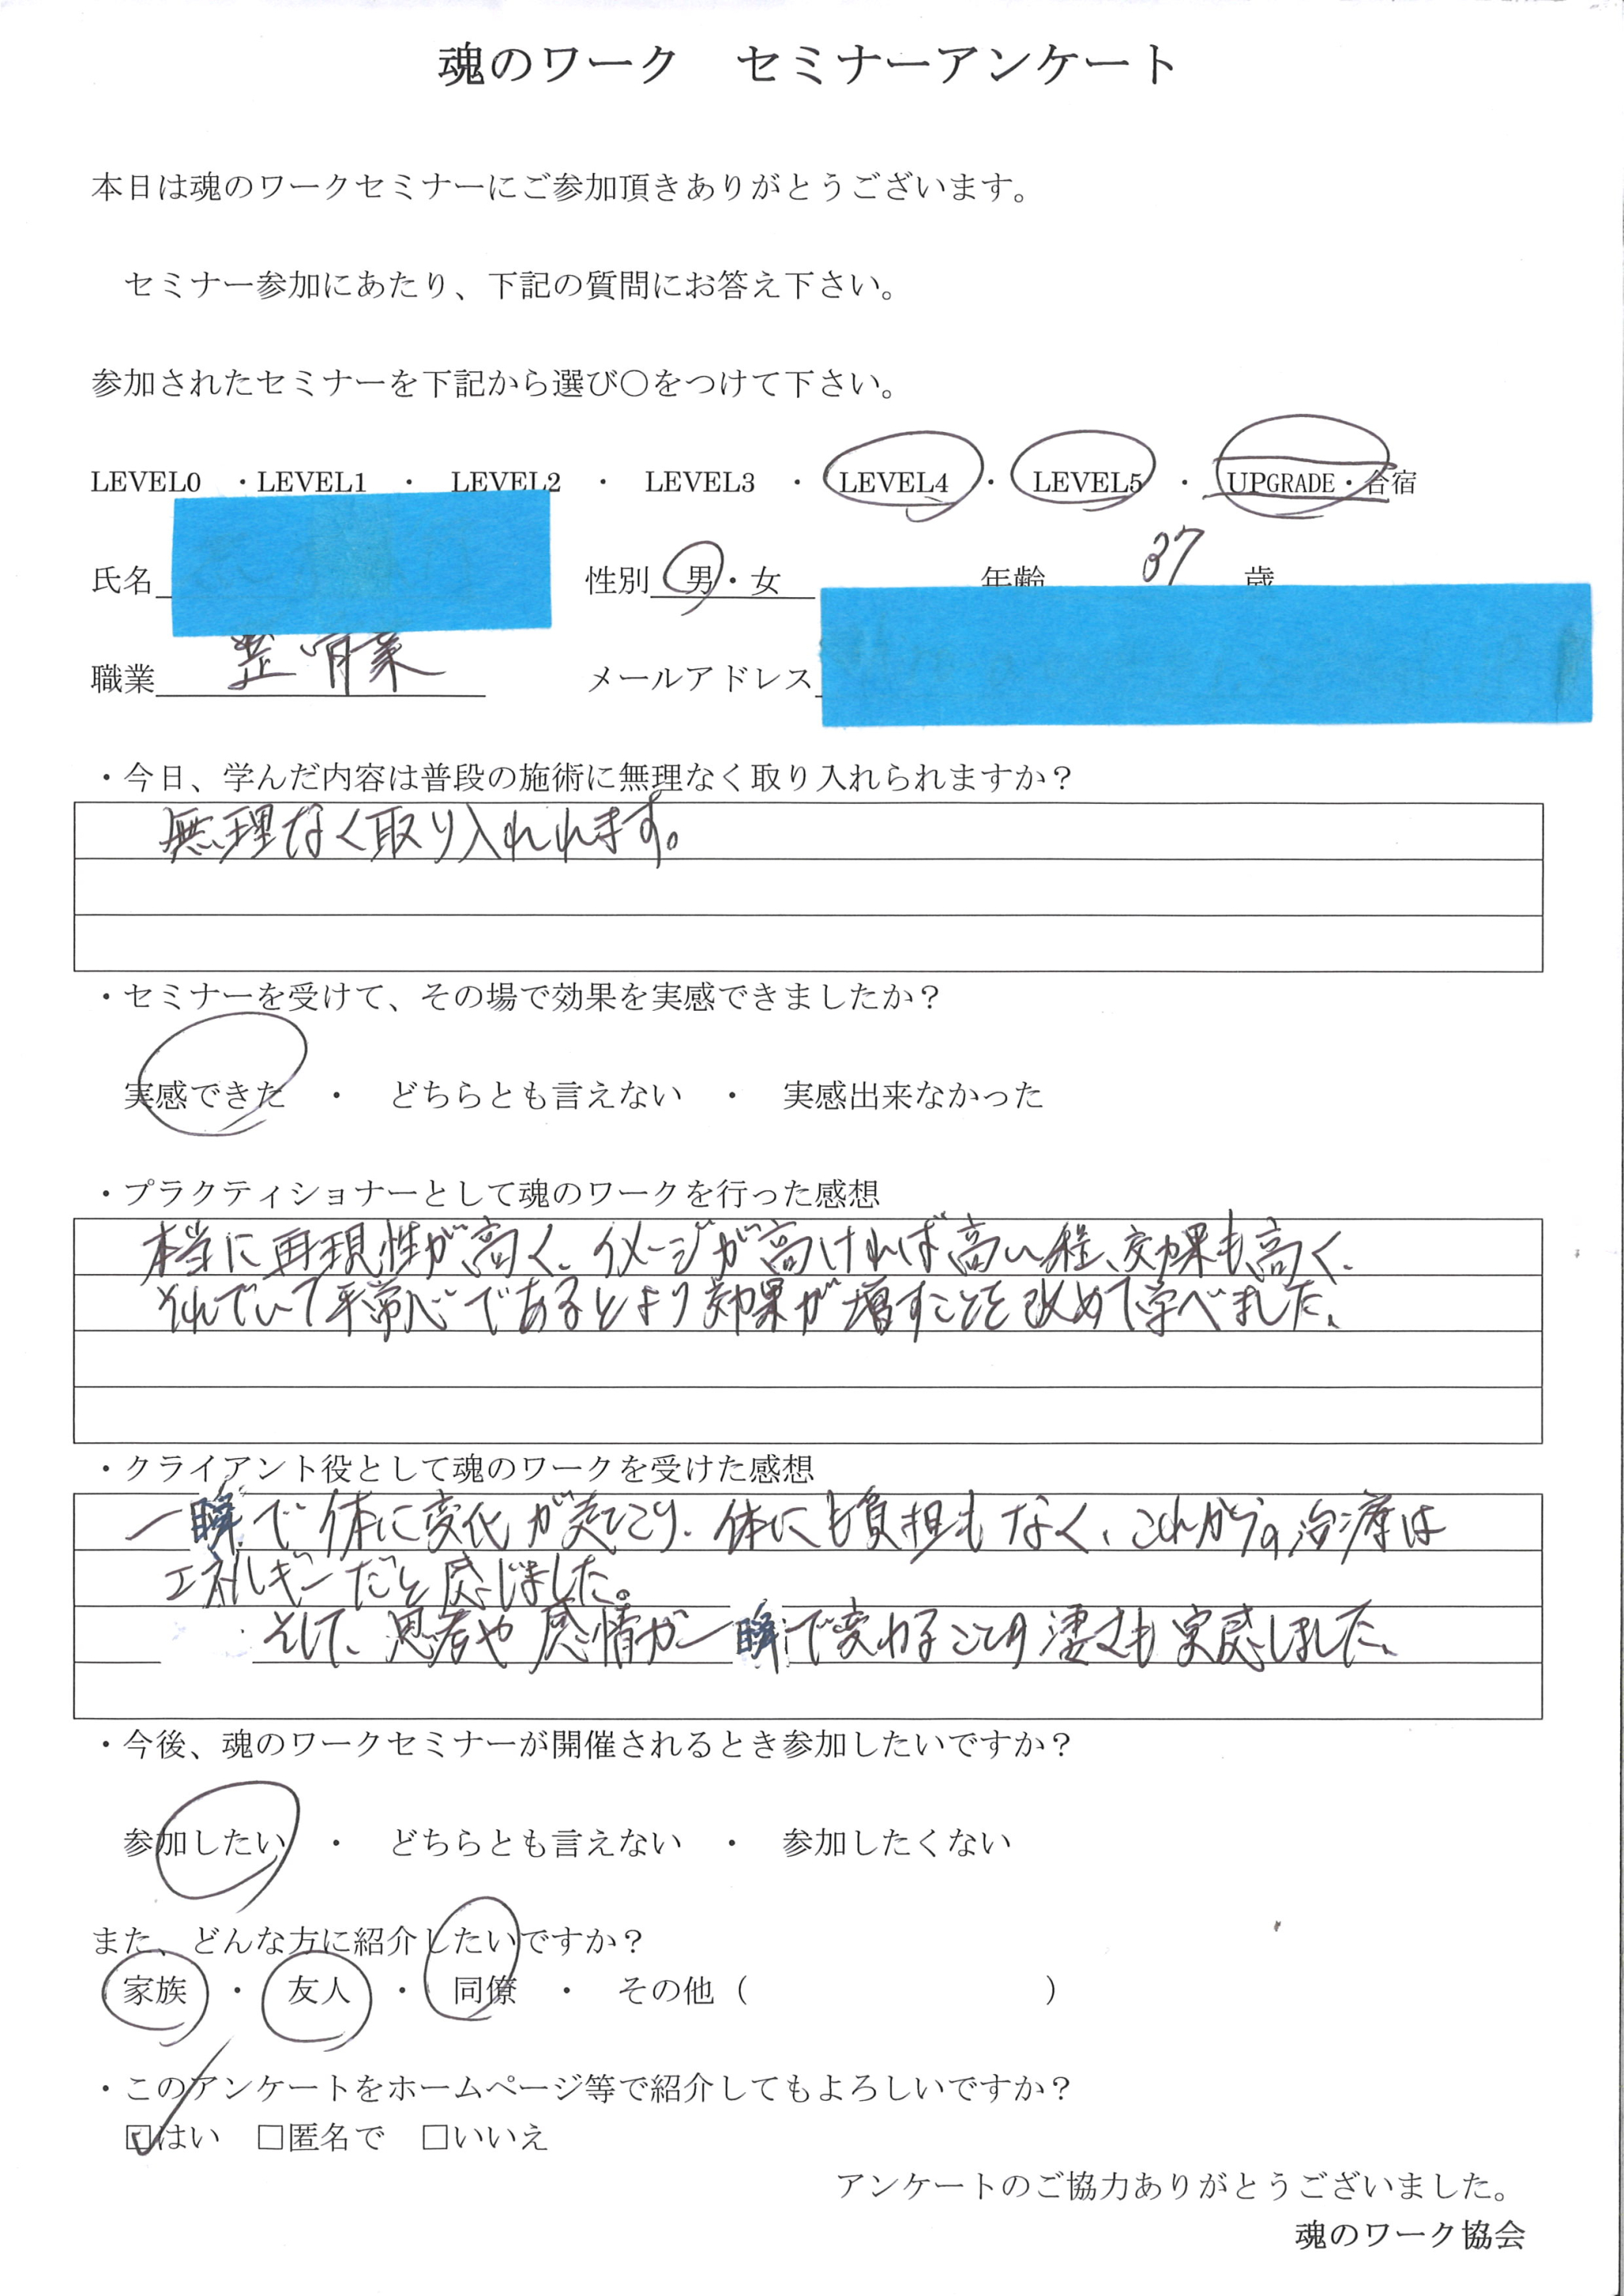 魂のワーク　セミナーアンケート
本日は魂のワークセミナーにご参加頂きありがとうございます。
セミナー参加にあたり、下記の質問にお答え下さい。
参加されたセミナーを下記から選び〇をつけて下さい。
LEVEL0　・LEVEL1　・　LEVEL2　・　LEVEL3　・　LEVEL4　・　LEVEL5　・　UPGRADE・合宿
氏名　性別　男・女　年齢　37　歳
職業　整骨業　メールアドレス
・今日、学んだ内容は普段の施術に無理なく取り入れられますか？
無理なく取り入れれます。
・セミナーを受けて、その場で効果を実感できましたか？
実感できた　・　どちらとも言えない　・　実感出来なかった
・プラクティショナーとして魂のワークを行った感想
本当に再現性が高く、イメージが高ければ高い程、効果も高く、
それでいて平常心であるとより効果が増すことを改めて学べました。
・クライアント役として魂のワークを受けた感想
一瞬で体に変化が起こり、体にも負担もなく、これからの治療は
エネルギーだと感じました。
そして、思考や感情が一瞬で変わることの凄さも実感しました。
・今後、魂のワークセミナーが開催されるとき参加したいですか？
参加したい　・　どちらとも言えない　・　参加したくない
また、どんな方に紹介したいですか？
家族　・　友人　・　同僚　・　その他（　　　　　　　　　）
・このアンケートをホームページ等で紹介してもよろしいですか？
☑はい　□匿名で　□いいえ
アンケートのご協力ありがとうございました。
魂のワーク協会